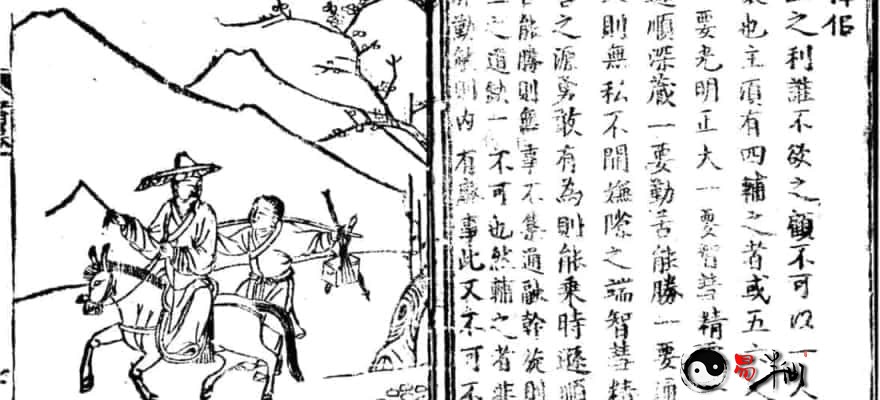 侶
之利誰不欲之顧不可以一人
也主須有四輔之者或五
要光明正大一要智彗精
順深藏一要勤苦能勝一要通
則無私不開嫌隙之端智彗精
之源勇敢有為則能乘時遜順
能勝則無事不集通融幹旋則
之道缺一不可也然輔之者非
勤能則內有廢事此又不可不
易